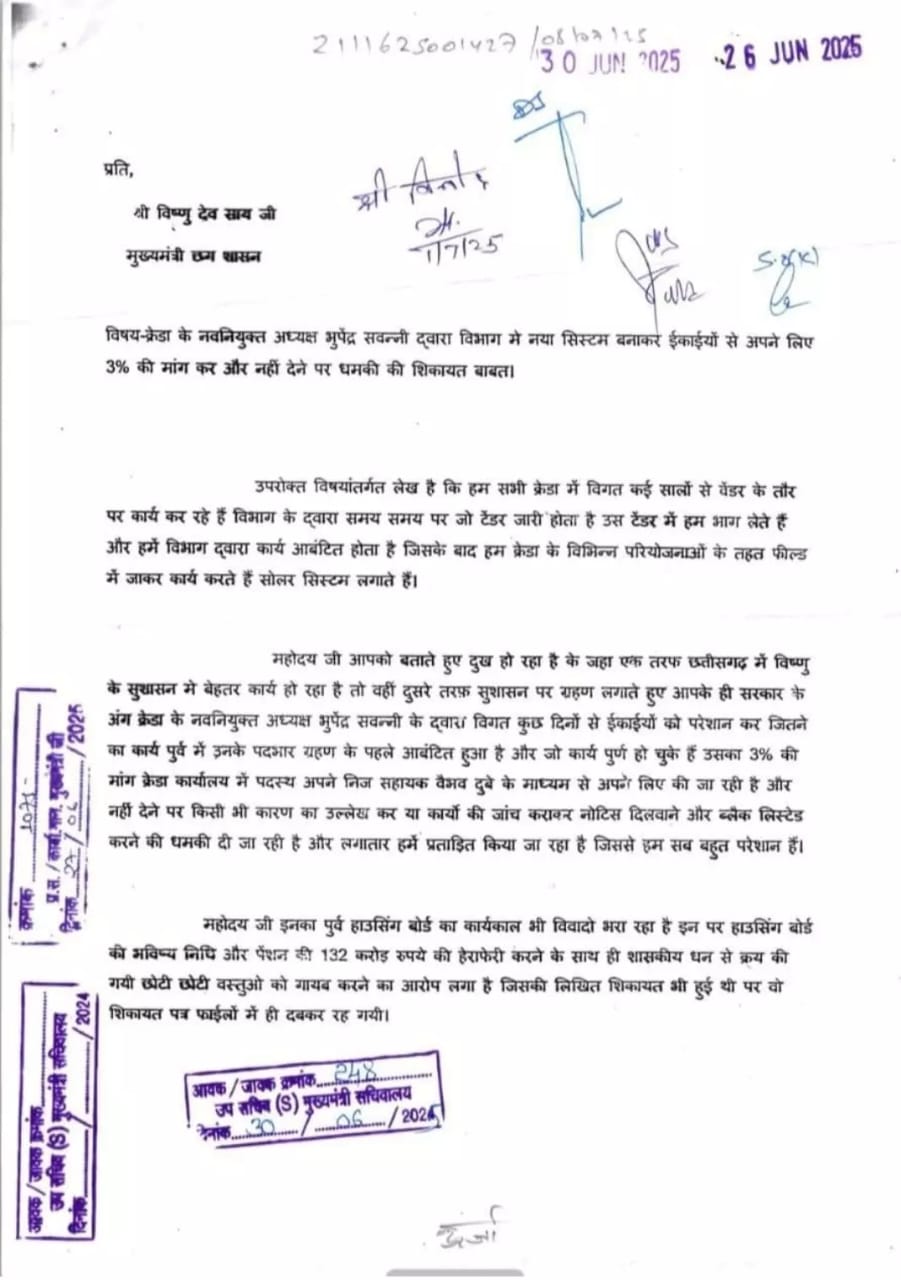 2111625001427 /08/07/25
30 JUN 2025 26 JUN 2025
प्रति,
श्री विष्णु देव साय जी
मुख्यमंत्री छग शासन
श्री
1/7/25
विषय-क्रेडा के नवनियुक्त अध्यक्ष भुपेंद्र सवन्नी द्वारा विभाग मे नया सिस्टम बनाकर ईकाईयों से अपने लिए
3% की मांग कर और नहीं देने पर धमकी की शिकायत बाबत।
उपरोक्त विषयांतर्गत लेख है कि हम सभी क्रेडा में विगत कई सालों से वेंडर के तौर
पर कार्य कर रहे हैं विभाग के द्वारा समय समय पर जो टेंडर जारी होता है उस टेंडर में हम भाग लेते हैं
और हमें विभाग द्वारा कार्य आबंटित होता है जिसके बाद हम क्रेडा के विभिन्न परियोजनाओं के तहत फील्ड
में जाकर कार्य करते हैं सोलर सिस्टम लगाते हैं।
महोदय जी आपको बताते हुए दुख हो रहा है के जहा एक तरफ छतीसगढ़ में विष्णु
के सुशासन मे बेहतर कार्य हो रहा है तो वहीं दुसरे तरफ़ सुशासन पर ग्रहण लगाते हुए आपके ही सरकार के
अंग क्रेडा के नवनियुक्त अध्यक्ष भुपेंद्र सवन्नी के द्वारा विगत कुछ दिनों से ईकाईयों को परेशान कर जितने
का कार्य पुर्व में उनके पदभार ग्रहण के पहले आबंटित हुआ है और जो कार्य पुर्ण हो चुके हैं उसका 3% की
मांग क्रेडा कार्यालय में पदस्थ अपने निज सहायक वैभव दुबे के माध्यम से अपने लिए की जा रही है और
नहीं देने पर किसी भी कारण का उल्लेख कर या कार्यो की जांच कराकर नोटिस दिलवाने और ब्लैक लिस्टेड
करने की धमकी दी जा रही है और लगातार हमें प्रताड़ित किया जा रहा है जिससे हम सब बहुत परेशान हैं।
महोदय जी इनका पुर्व हाउसिंग बोर्ड का कार्यकाल भी विवादो भरा रहा है इन पर हाउसिंग बोर्ड
की भविष्य निधि और पेंशन की 132 करोड़ रुपये की हेराफेरी करने के साथ ही शासकीय धन से क्रय की
गयी छोटी छोटी वस्तुओ को गायब करने का आरोप लगा है जिसकी लिखित शिकायत भी हुई थी पर वो
शिकायत पत्र फाईलों में ही दबकर रह गयी।
क्रमांक 1071
प्र.स. / मुख्यमंत्री जी
दिनांक 27/06/2025
आवक / जावक क्रमांक
उप सचिव (S) मुख्यमंत्री सचिवालय
दिनांक / /2024
आवक / जावक क्रमांक 248
उप सचिव (S) मुख्यमंत्री सचिवालय
दिनांक 30 / 06 / 2025
ऊर्जा